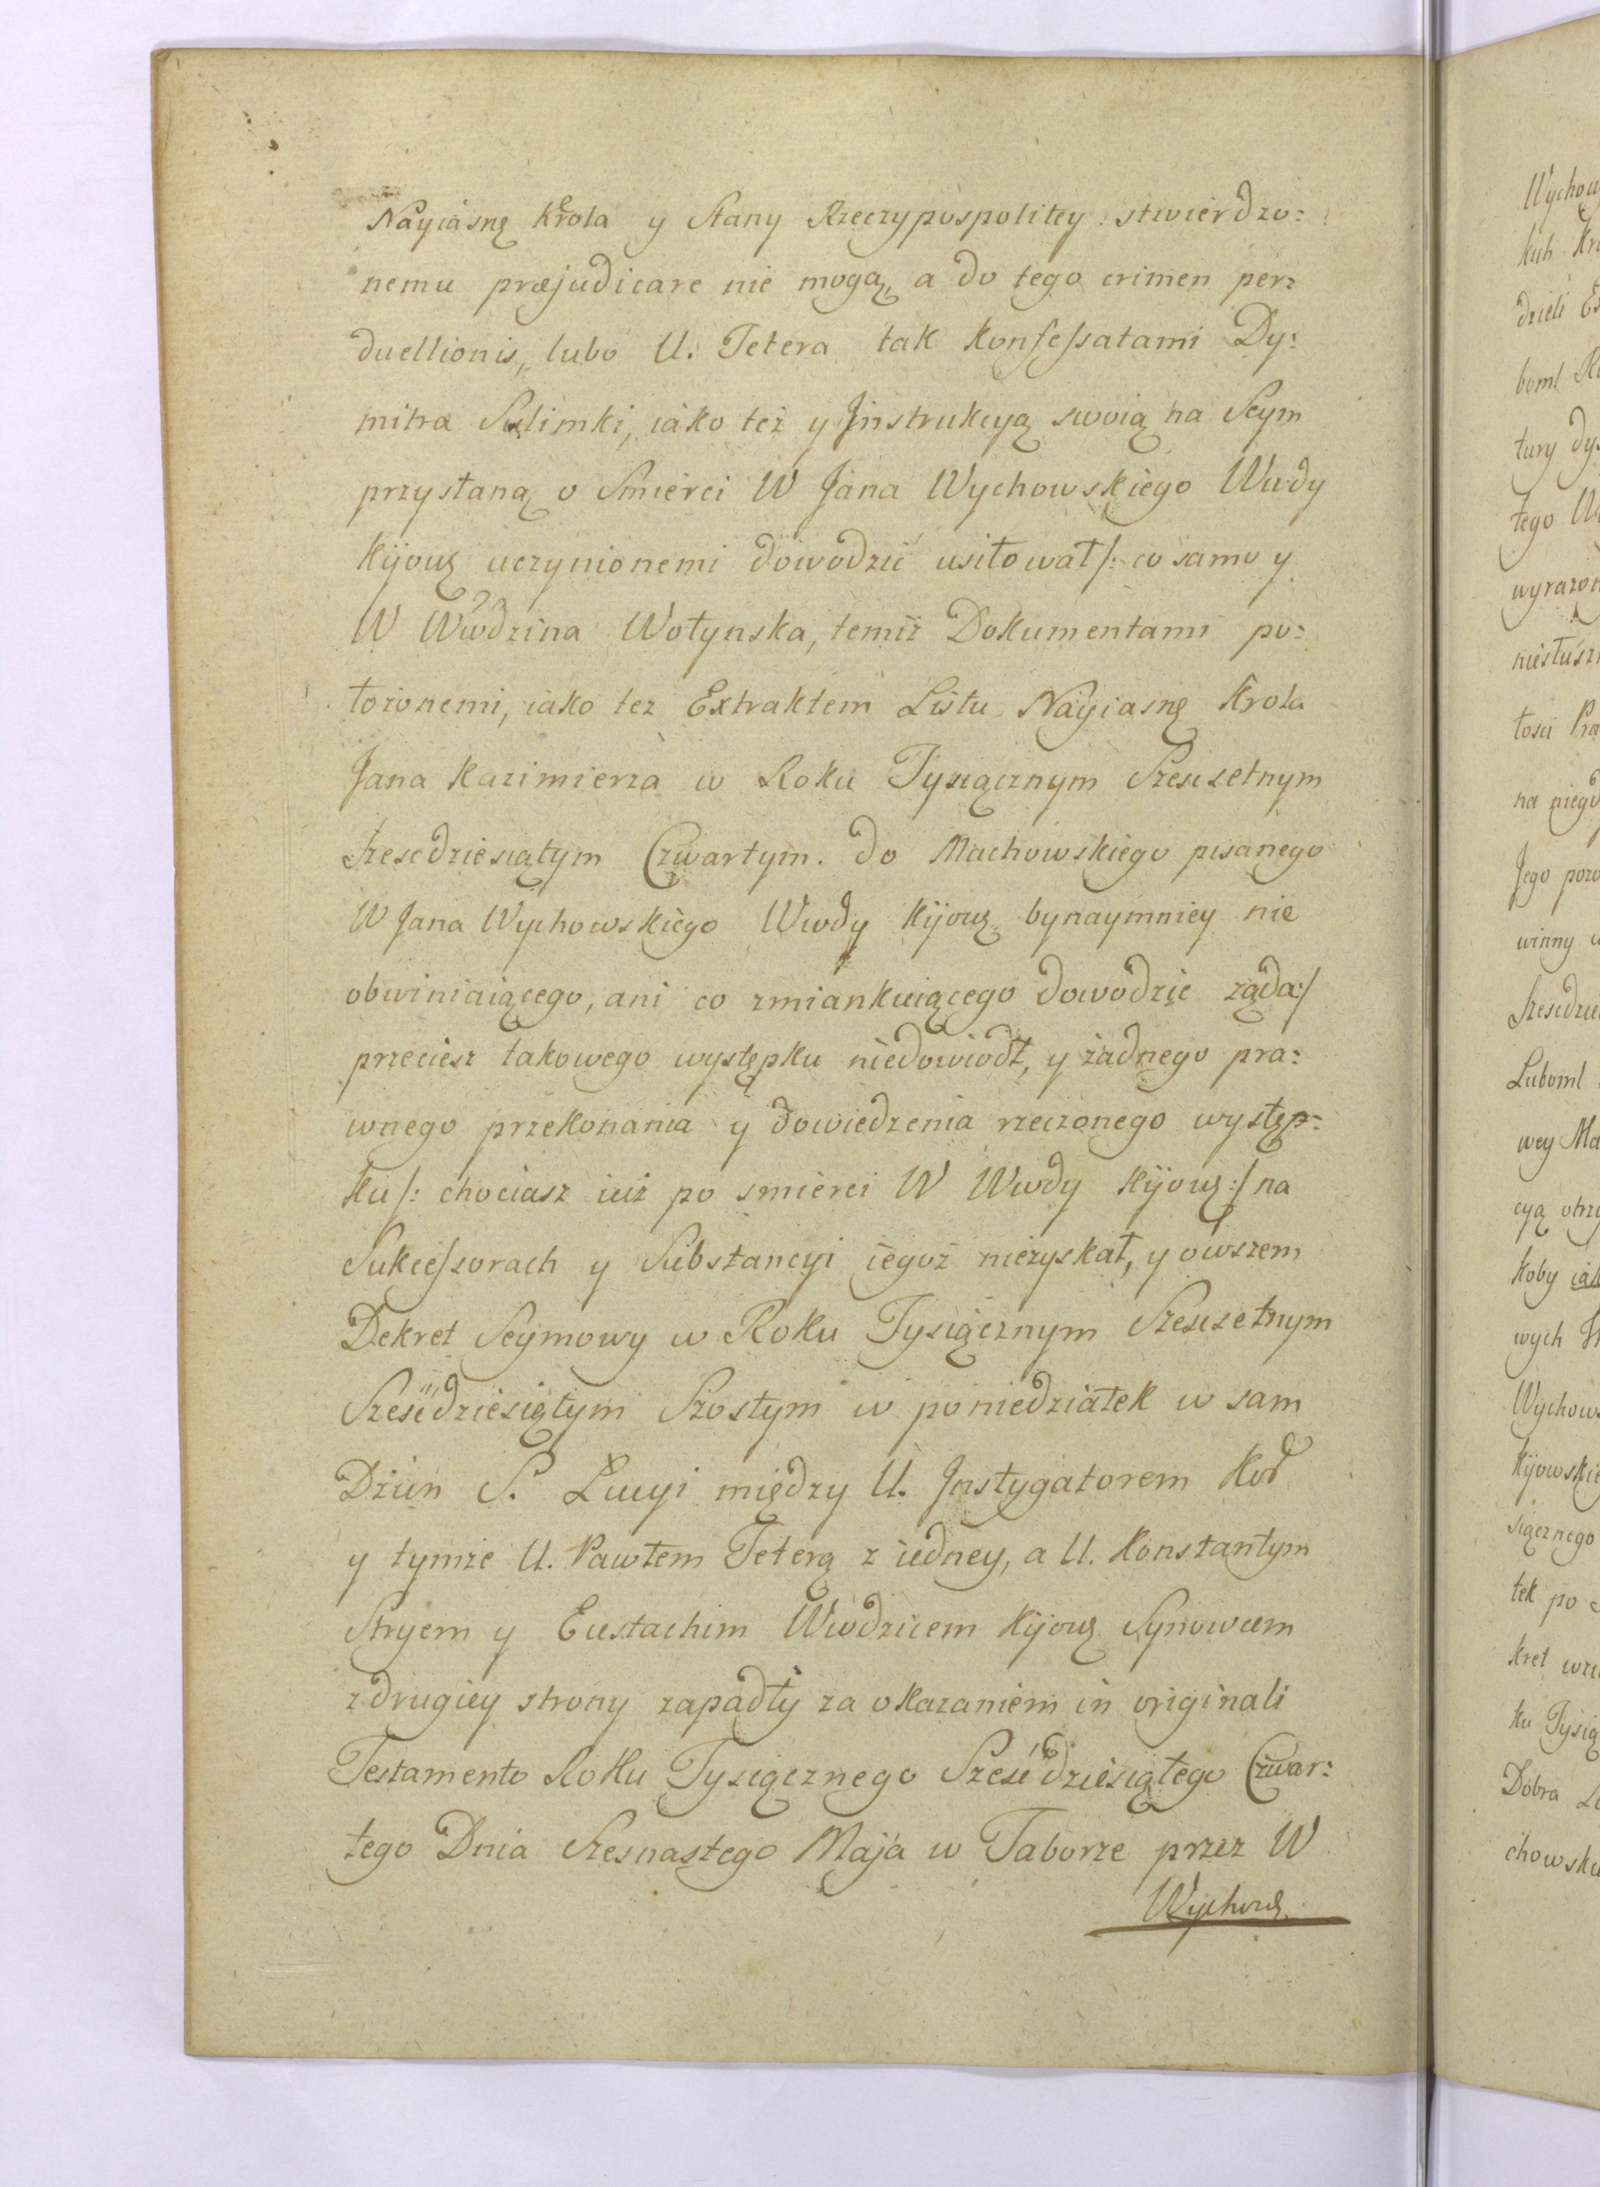 Nayiasnę Krola y Stany Rzeczypospolitey stwierdzo:
nemu præjudicare nie mogą, a do tego crimen per:
duellionis, lubo U. Tetera tak Konfessatami Dy:
mitra Sulimki, iako też y Jnstrukcyą swoią na Seym
przysłaną o Smierci W Jana Wychowskiego Wwdy
Kijowę uczynionemi dowodzić usiłował /: co samo y
W Wwdzina Wołynska, temiż Dokumentami po:
łożonemi, iako tez Extraktem Listu Nayiasnę Krola
Jana Kazimierza w Roku Tysiącznym Szescsetnym
Szescdziesiątym Czwartym. do Machowskiego pisanego
W Jana Wychowskiego Wwdy Kijowę bynaymniey nie
obwiniaiącego, ani co zmiankuiącego dowodzić ządał :/
przeciesz takowego występku niedowiodł, y żadnego pra:
wnego przekonania y dowiedzenia rzeczonego występ:
ku /: chociasz iuż po smierci W Wwdy Kijowę :/ na
Sukcessorach y Substancyi iegoż niezyskał, y owszem
Dekret Seymowy w Roku Tysiącznym Szescsetnym
Sześćdziesiątym Szostym w poniedziałek w sam
Dzień S. Lucyi między U. Jnstygatorem Kor
y tymże U. Pawłem Teterą z iedney, a U. Konstantym
Stryem y Eustachim Wwdzicem Kijowę Synowcem
z drugiey strony zapadły za okazaniem in originali
Testamento Roku Tysiącznego Sześćdziesiątego Czwar:
tego Dnia Szesnastego Maja w Taborze przez W
Wychowę
Wychow
kich Kr
dzieli Ex
boml
tury dys
tego W
wyrazon
niesłuszn
tosci Pra
na niegd
Jego pozo
winny
Szescdzie
Luboml
wey Ma
cyą otrzy
koby iak
wych
Wychows
Kijowskie
siącznego
tek po
kret
ku Tysią
Dobra
chowsk